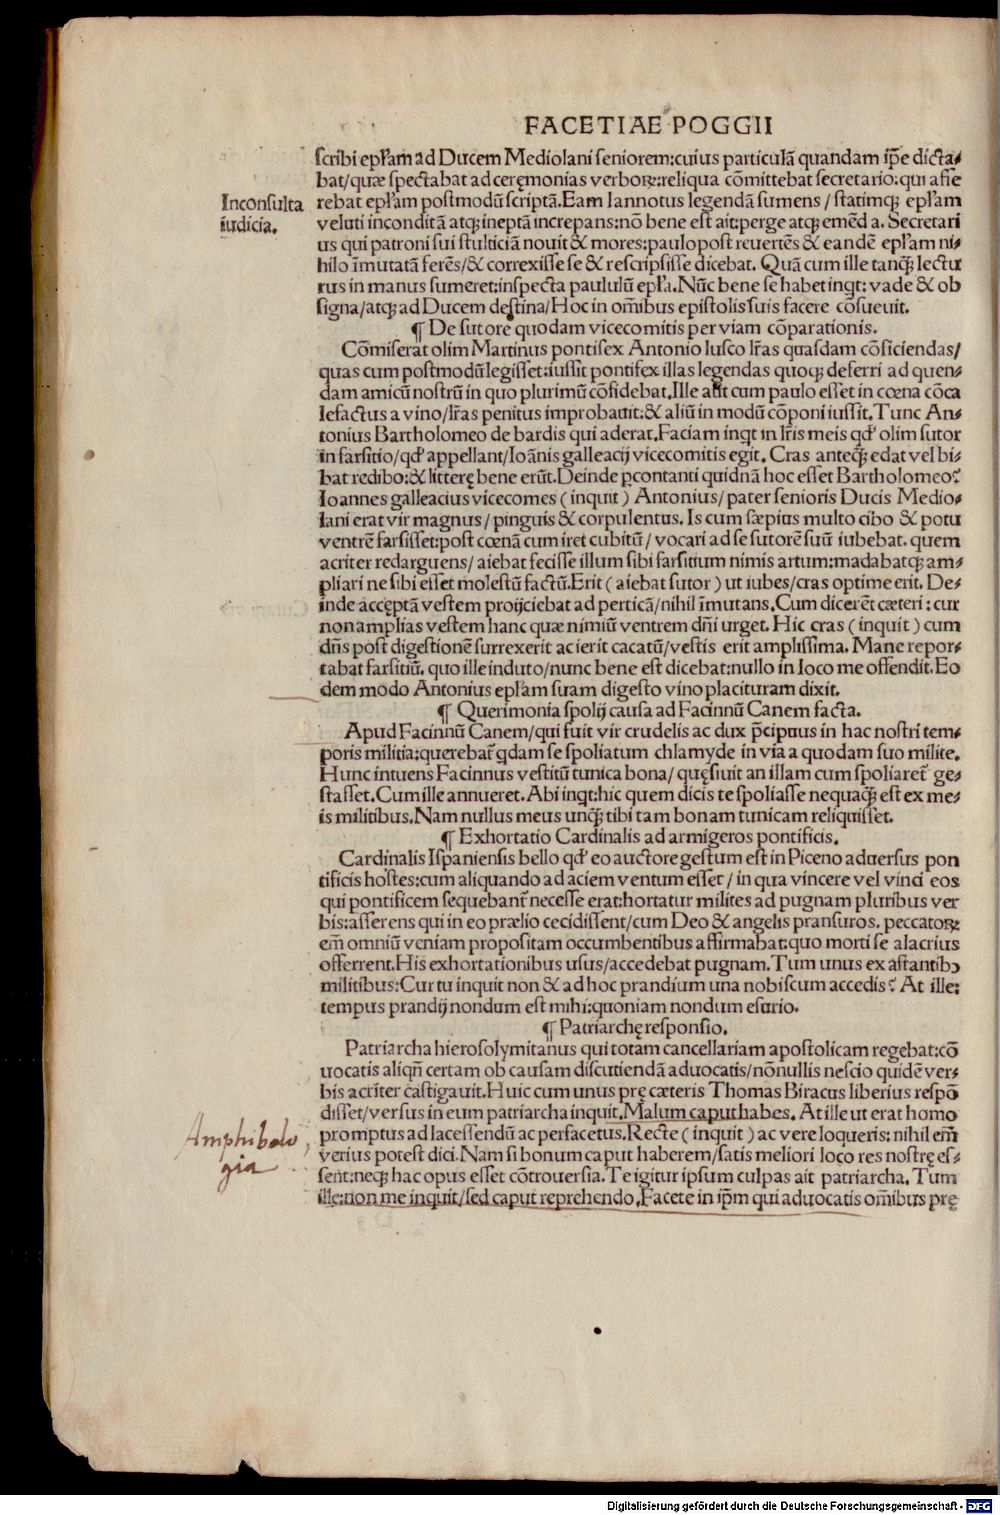 FACETIAE POGGII
scribi epłam ad Ducem Mediolani seniorem:cuius particulā quandam ip̄e dicta-
bat/quæ spectabat ad cerȩmonias verboꝝ:reliqua cōmittebat secretario:qui affe
Inconsulta
iudicia.
rebat epłam postmodū scriptā.Eam Iannotus legendā sumens / statimqꝫ epłam
veluti inconditā atqꝫ ineptā increpans:nō bene est ait:perge atqꝫ emēd a. Secretari
us qui patroni sui stulticiā nouit & mores:paulopost reuertēs & eandē epłam ni-
hilo īmutatā ferēs/& correxisse se & rescripsisse dicebat. Quā cum ille tanqꝫ lectu
rus in manus sumeret:inspecta paululū epła.Nūc bene se habet inqt: vade & ob
signa/atqꝫ ad Ducem destina/Hoc in om̄ibus epistolis suis facere cōsueuit.
¶ De sutore quodam vicecomitis per viam cōparationis.
Cōmiserat olim Martinus pontifex Antonio lusco lr̄as quasdam cōficiendas/
quas cum postmodū legisset:iussit pontifex illas legendas quoqꝫ deferri ad quen-
dam amicū nostrū in quo plurimū cōfidebat.Ille aūt cum paulo esset in cœna cōca
lefactus a vino/lr̄as penitus improbauit:& aliū in modū cōponi iussit.Tunc An-
tonius Bartholomeo de bardis qui aderat.Faciam inqt in lr̄is meis qđ olim sutor
in farsitio/qđ appellant/Ioānis galleacij vicecomitis egit. Cras anteqꝫ edat vel bi-
bat redibo:& litterȩ bene erūt.Deinde ꝑcontanti quidnā hoc esset Bartholomeo?
Ioannes galleacius vicecomes ( inquit ) Antonius/ pater senioris Ducis Medio-
lani erat vir magnus / pinguis & corpulentus. Is cum sæpius multo cibo & potu
ventrē farsisset:post cœnā cum iret cubitū / vocari ad se sutorē suū iubebat. quem
acriter redarguens/ aiebat fecisse illum sibi farsitium nimis artum:mādabatqꝫ am-
pliari ne sibi esset molestū factū.Erit ( aiebat sutor ) ut iubes/cras optime erit. De-
inde accȩptā vestem proijciebat ad perticā/nihil īmutans.Cum dicerēt cæteri : cur
non amplias vestem hanc quæ nimiū ventrem dn̄i urget. Hic cras ( inquit ) cum
dn̄s post digestionē surrexerit ac ierit cacatū/vestis erit amplissima. Mane repor-
tabat farsitiū. quo ille induto/nunc bene est dicebat:nullo in loco me offendit.Eo
dem modo Antonius epłam suam digesto vino placituram dixit.
¶ Querimonia spolij causa ad Facinnū Canem facta.
Apud Facinnū Canem/qui fuit vir crudelis ac dux p̄cipuus in hac nostri tem-
poris militia:querebat̄ qdam se spoliatum chlamyde in via a quodam suo milite.
Hunc intuens Facinnus vestitū tunica bona/ quȩsiuit an illam cum spoliaret̄ ge-
stasset.Cum ille annueret.Abi inqt:hic quem dicis te spoliasse nequaqꝫ est ex me-
is militibus.Nam nullus meus unqꝫ tibi tam bonam tunicam reliquisset.
¶ Exhortatio Cardinalis ad armigeros pontificis.
Cardinalis Ispaniensis bello qđ eo auctore gestum est in Piceno aduersus pon
tificis hostes:cum aliquando ad aciem ventum esset / in qua vincere vel vinci eos
qui pontificem sequebant̄ necesse erat:hortatur milites ad pugnam pluribus ver
bis:asserens qui in eo prælio cecidissent/cum Deo & angelis pransuros. peccatoꝝ
em̄ omniū veniam propositam occumbentibus affirmabat:quo morti se alacrius
offerrent.His exhortationibus usus/accedebat pugnam.Tum unus ex astantibꝰ
militibus:Cur tu inquit non & ad hoc prandium una nobiscum accedis? At ille:
tempus prandij nondum est mihi:quoniam nondum esurio.
¶ Patriarchȩ responsio.
Patriarcha hierosolymitanus qui totam cancellariam apostolicam regebat:cō
uocatis aliqn̄ certam ob causam discutiendā aduocatis/nōnullis nescio quidē ver-
bis acriter castigauit.Huic cum unus prȩ cæteris Thomas Biracus liberius respō
disset/versus in eum patriarcha inquit.Malum caput habes. At ille ut erat homo
Amphibolo
gia
promptus ad lacessendū ac perfacetus.Recte ( inquit ) ac vere loqueris: nihil em̄
verius potest dici.Nam si bonum caput haberem/satis meliori loco res nostrȩ es-
sent:neqꝫ hac opus esset cōtrouersia. Te igitur ipsum culpas ait patriarcha. Tum
ille:non me inquit/sed caput reprehendo.Facete in ip̄m qui aduocatis om̄ibus prȩ
Digitalisierung gefördert durch die Deutsche Forschungsgemeinschaft - DFG